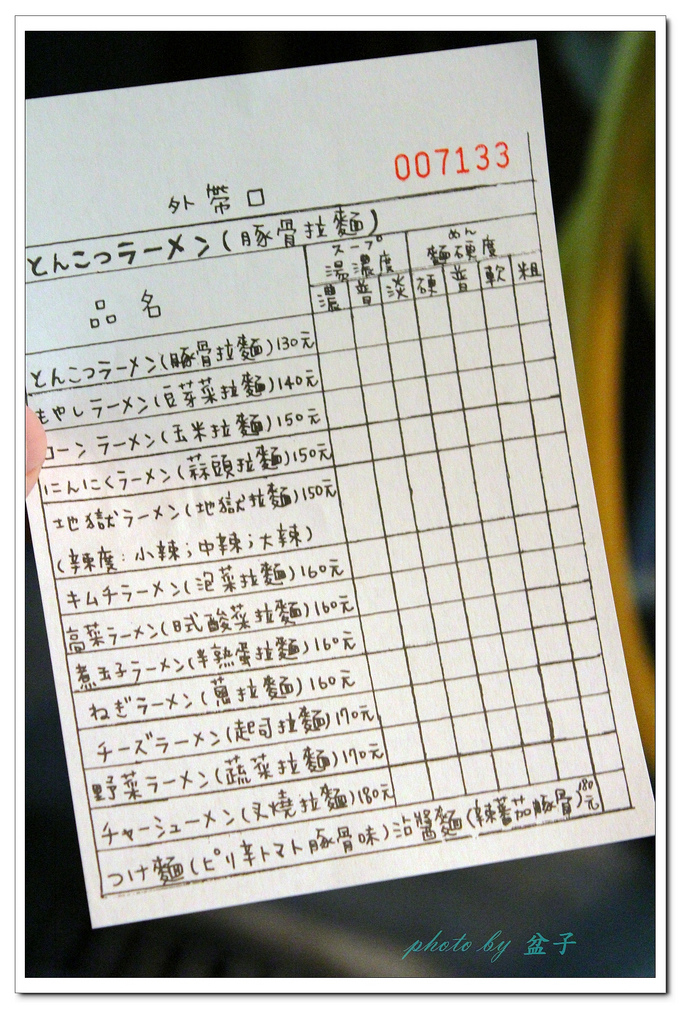 007133
外帶口
とんこつラーメン(豚骨拉麵)
スープ めん
湯濃度 麵硬度
品名 濃 普 淡 硬 普 軟 粗
とんこつラーメン(豚骨拉麵)130元
もやしラーメン(豆芽菜拉麵)140元
コーンラーメン(玉米拉麵)150元
にんにくラーメン(蒜頭拉麵)150元
地獄ラーメン(地獄拉麵)150元
(辣度:小辣;中辣;大辣)
キムチラーメン(泡菜拉麵)160元
高菜ラーメン(日式酸菜拉麵)160元
煮玉子ラーメン(半熟蛋拉麵)160元
ねぎラーメン(蔥拉麵)160元
チーズラーメン(起司拉麵)170元
野菜ラーメン(蔬菜拉麵)170元
チャーシューメン(叉燒拉麵)180元
つけ麵(ピリ辛トマト豚骨味)沾醬麵(辣蕃茄豚骨)180元
photo by 盆子